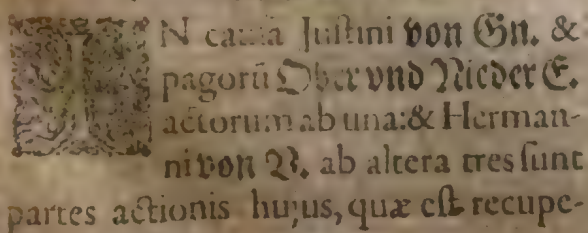 IN causa Juſtini von Gn. &
pagorũ Ober vnd Nieder E.
actorum ab una: & Herman-
ni von B. ab altera tres ſunt
partes actionis hujus, quæ eſt recupe-